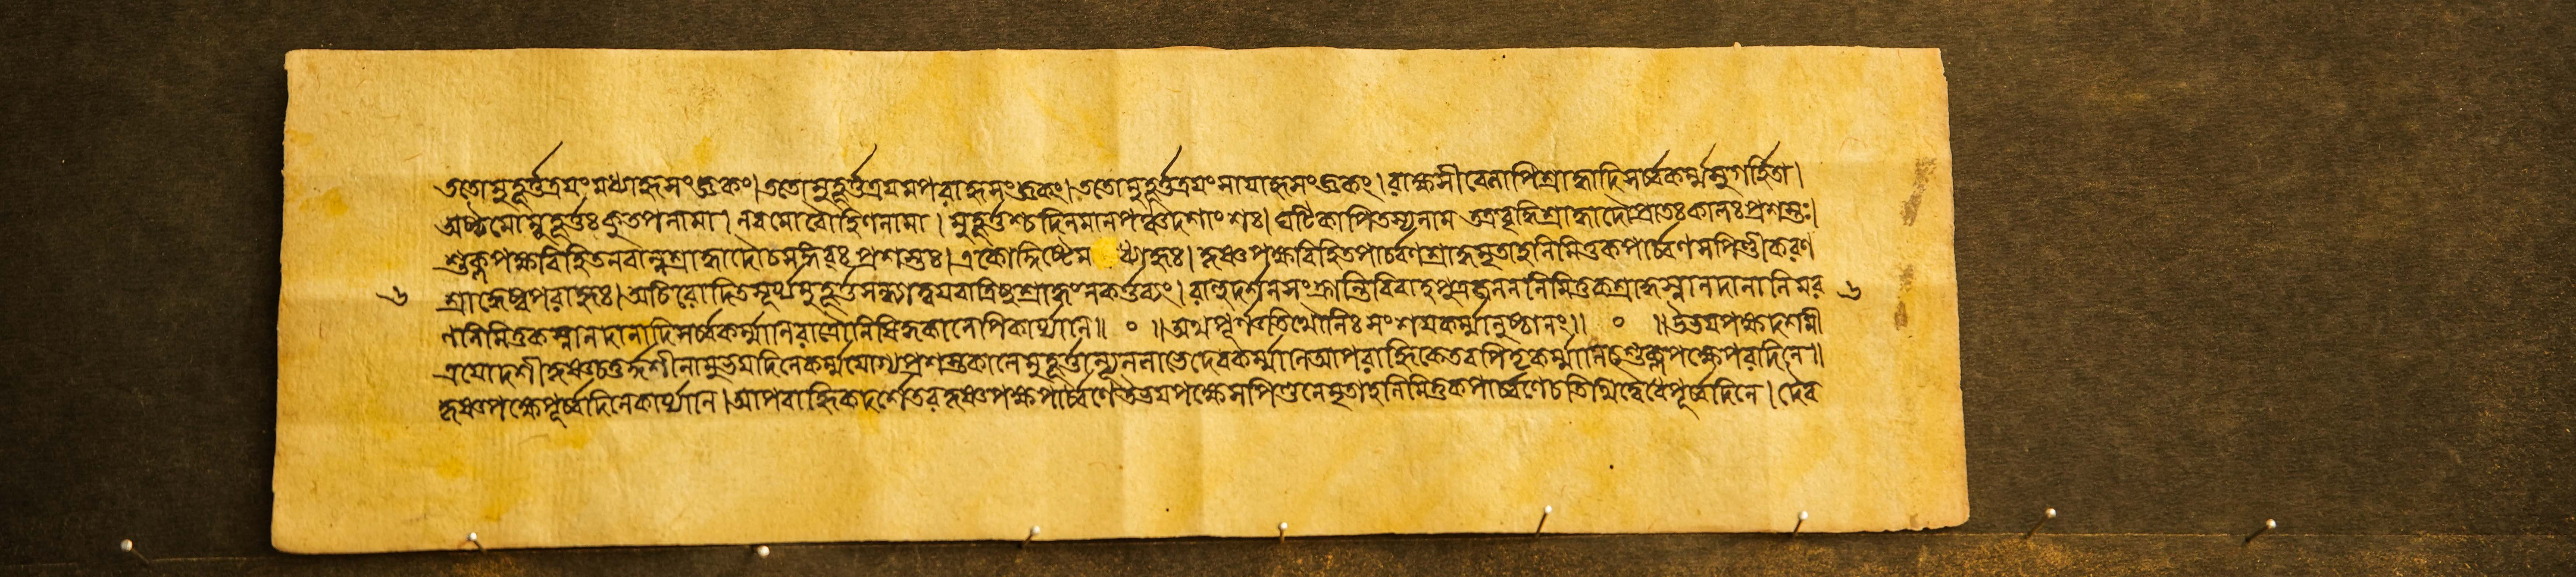 ততোমুহূর্ত্তত্রয়ং মধ্যাহ্নসংজ্ঞকং। ততোমুহূর্ত্তত্রয়মপরাহ্নসংজ্ঞকং। ততোমুহূর্ত্তত্রয়ং সায়াহ্নসংজ্ঞকং। রাক্ষসীবেলাপিশ্রাদ্ধাদিসর্ব্বকর্ম্মসুগর্হিতা।
অষ্টমোমুহূর্ত্তঃ কুতপনামা। নবমোরৌহিণনামা। মুহূর্ত্তশ্চদিনমানপঞ্চদশাংশঃ। ঘটিকাপিতস্যনাম তত্রবৃদ্ধিশ্রাদ্ধাদৌপ্রাতঃকালঃ প্রশস্তঃ।
শুক্লপক্ষবিহিতনবান্নশ্রাদ্ধাদৌ প্রশস্তঃ। একোদ্দিষ্টেম ধ্যাহ্নঃ। কৃষ্ণপক্ষবিহিতপার্ব্বণশ্রাদ্ধমৃতাহনিমিত্তকপার্ব্বণসপিণ্ডীকরণ
৬ শ্রাদ্ধেষ্বপরাহ্নঃ। অচিরোদিতসূর্য্যমুহূর্ত্তসন্ধ্যাদ্বয়রাত্রিষুশ্রাদ্ধংনকর্ত্তব্যং। রাহুদর্শনসংক্রান্তিবিবাহপুত্রজনননিমিত্তকশ্রাদ্ধস্নানদানানিমর ৬
ণনিমিত্তকস্নানদানাদিসর্ব্বকর্ম্মাণিরাত্রৌনিষিদ্ধকালেপিকার্য্যাণি॥ ০ ॥ অথপূর্ণতিথৌনিঃসংশয়কর্ম্মানুষ্ঠানং॥ ০ ॥ উভয়পক্ষদশমী
ত্রয়োদশীকৃষ্ণচতুর্দ্দশীনামুভয়দিনেকর্ম্মযোগ্যপ্রশস্তকালেমুহূর্ত্তান্যূনলাভেদেবকর্ম্মাণিআপরাহ্ণিকেতরপিতৃকর্ম্মাণিচশুক্লপক্ষেপরদিনে॥
কৃষ্ণপক্ষেপূর্ব্বদিনেকার্য্যাণি। আপরাহ্ণিকদর্শেতরকৃষ্ণপক্ষপার্ব্বণেউভয়পক্ষেসপিণ্ডনেমৃতাহনিমিত্তকপার্ব্বণেচতিথিদ্বৈধেপূর্ব্বদিনে। দেব